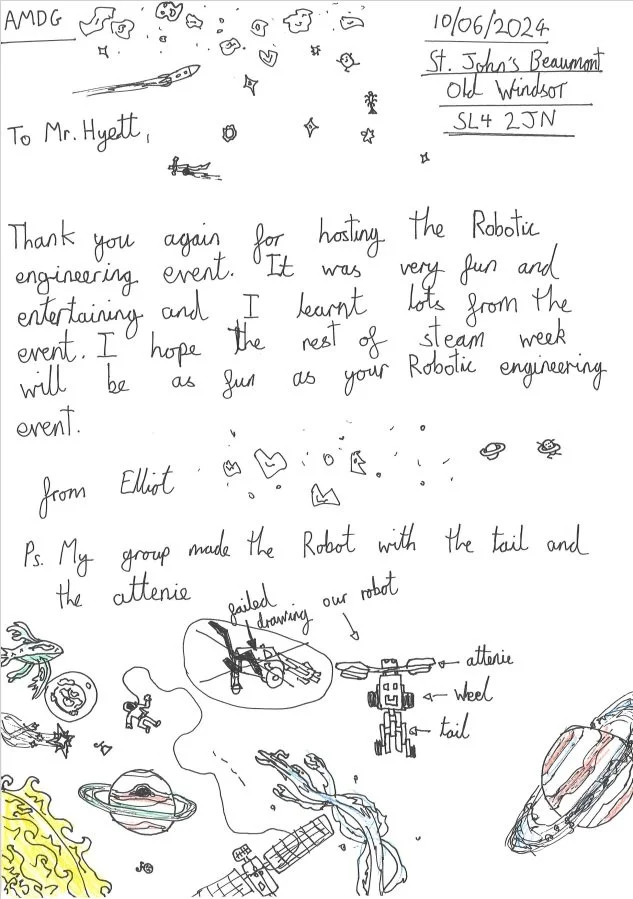 AMDG
10/06/2024
St. John's Beaumont
Old Windsor
SL4 2JN
To Mr. Hyett,
Thank you again for hosting the Robotic
engineering event. It was very fun and
entertaining and I learnt lots from the
event. I hope the rest of steam week
will be as fun as your Robotic engineering
event.
from Elliot
Ps. My group made the Robot with the tail and
the attenie
failed
drawing
our robot
attenie
weel
tail